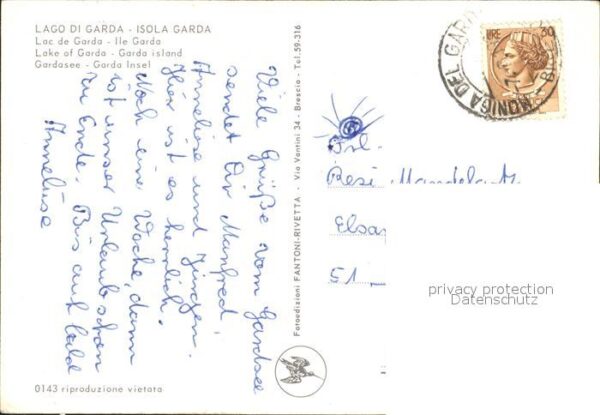 LAGO DI GARDA - ISOLA GARDA
Lac de Garda - Ile Garda
Lake of Garda - Garda island
Gardasee - Garda Insel
Viele Grüße vom Gardsee
sendet Dir Manfred,
Anneliese und Jürgen.
Hier ist es herrlich.
Noch eine Woche, dann
ist unser Urlaub schon
zu Ende. Bis auf bald
Anneliese
Fotoedizioni FANTONI-RIVETTA - Via Vantini 34 - Brescia - Tel. 59-316
LIRE 30
MONIGA DEL GARDA
Frl.
Resi
Elsa
51
privacy protection
Datenschutz
0143 riproduzione vietata